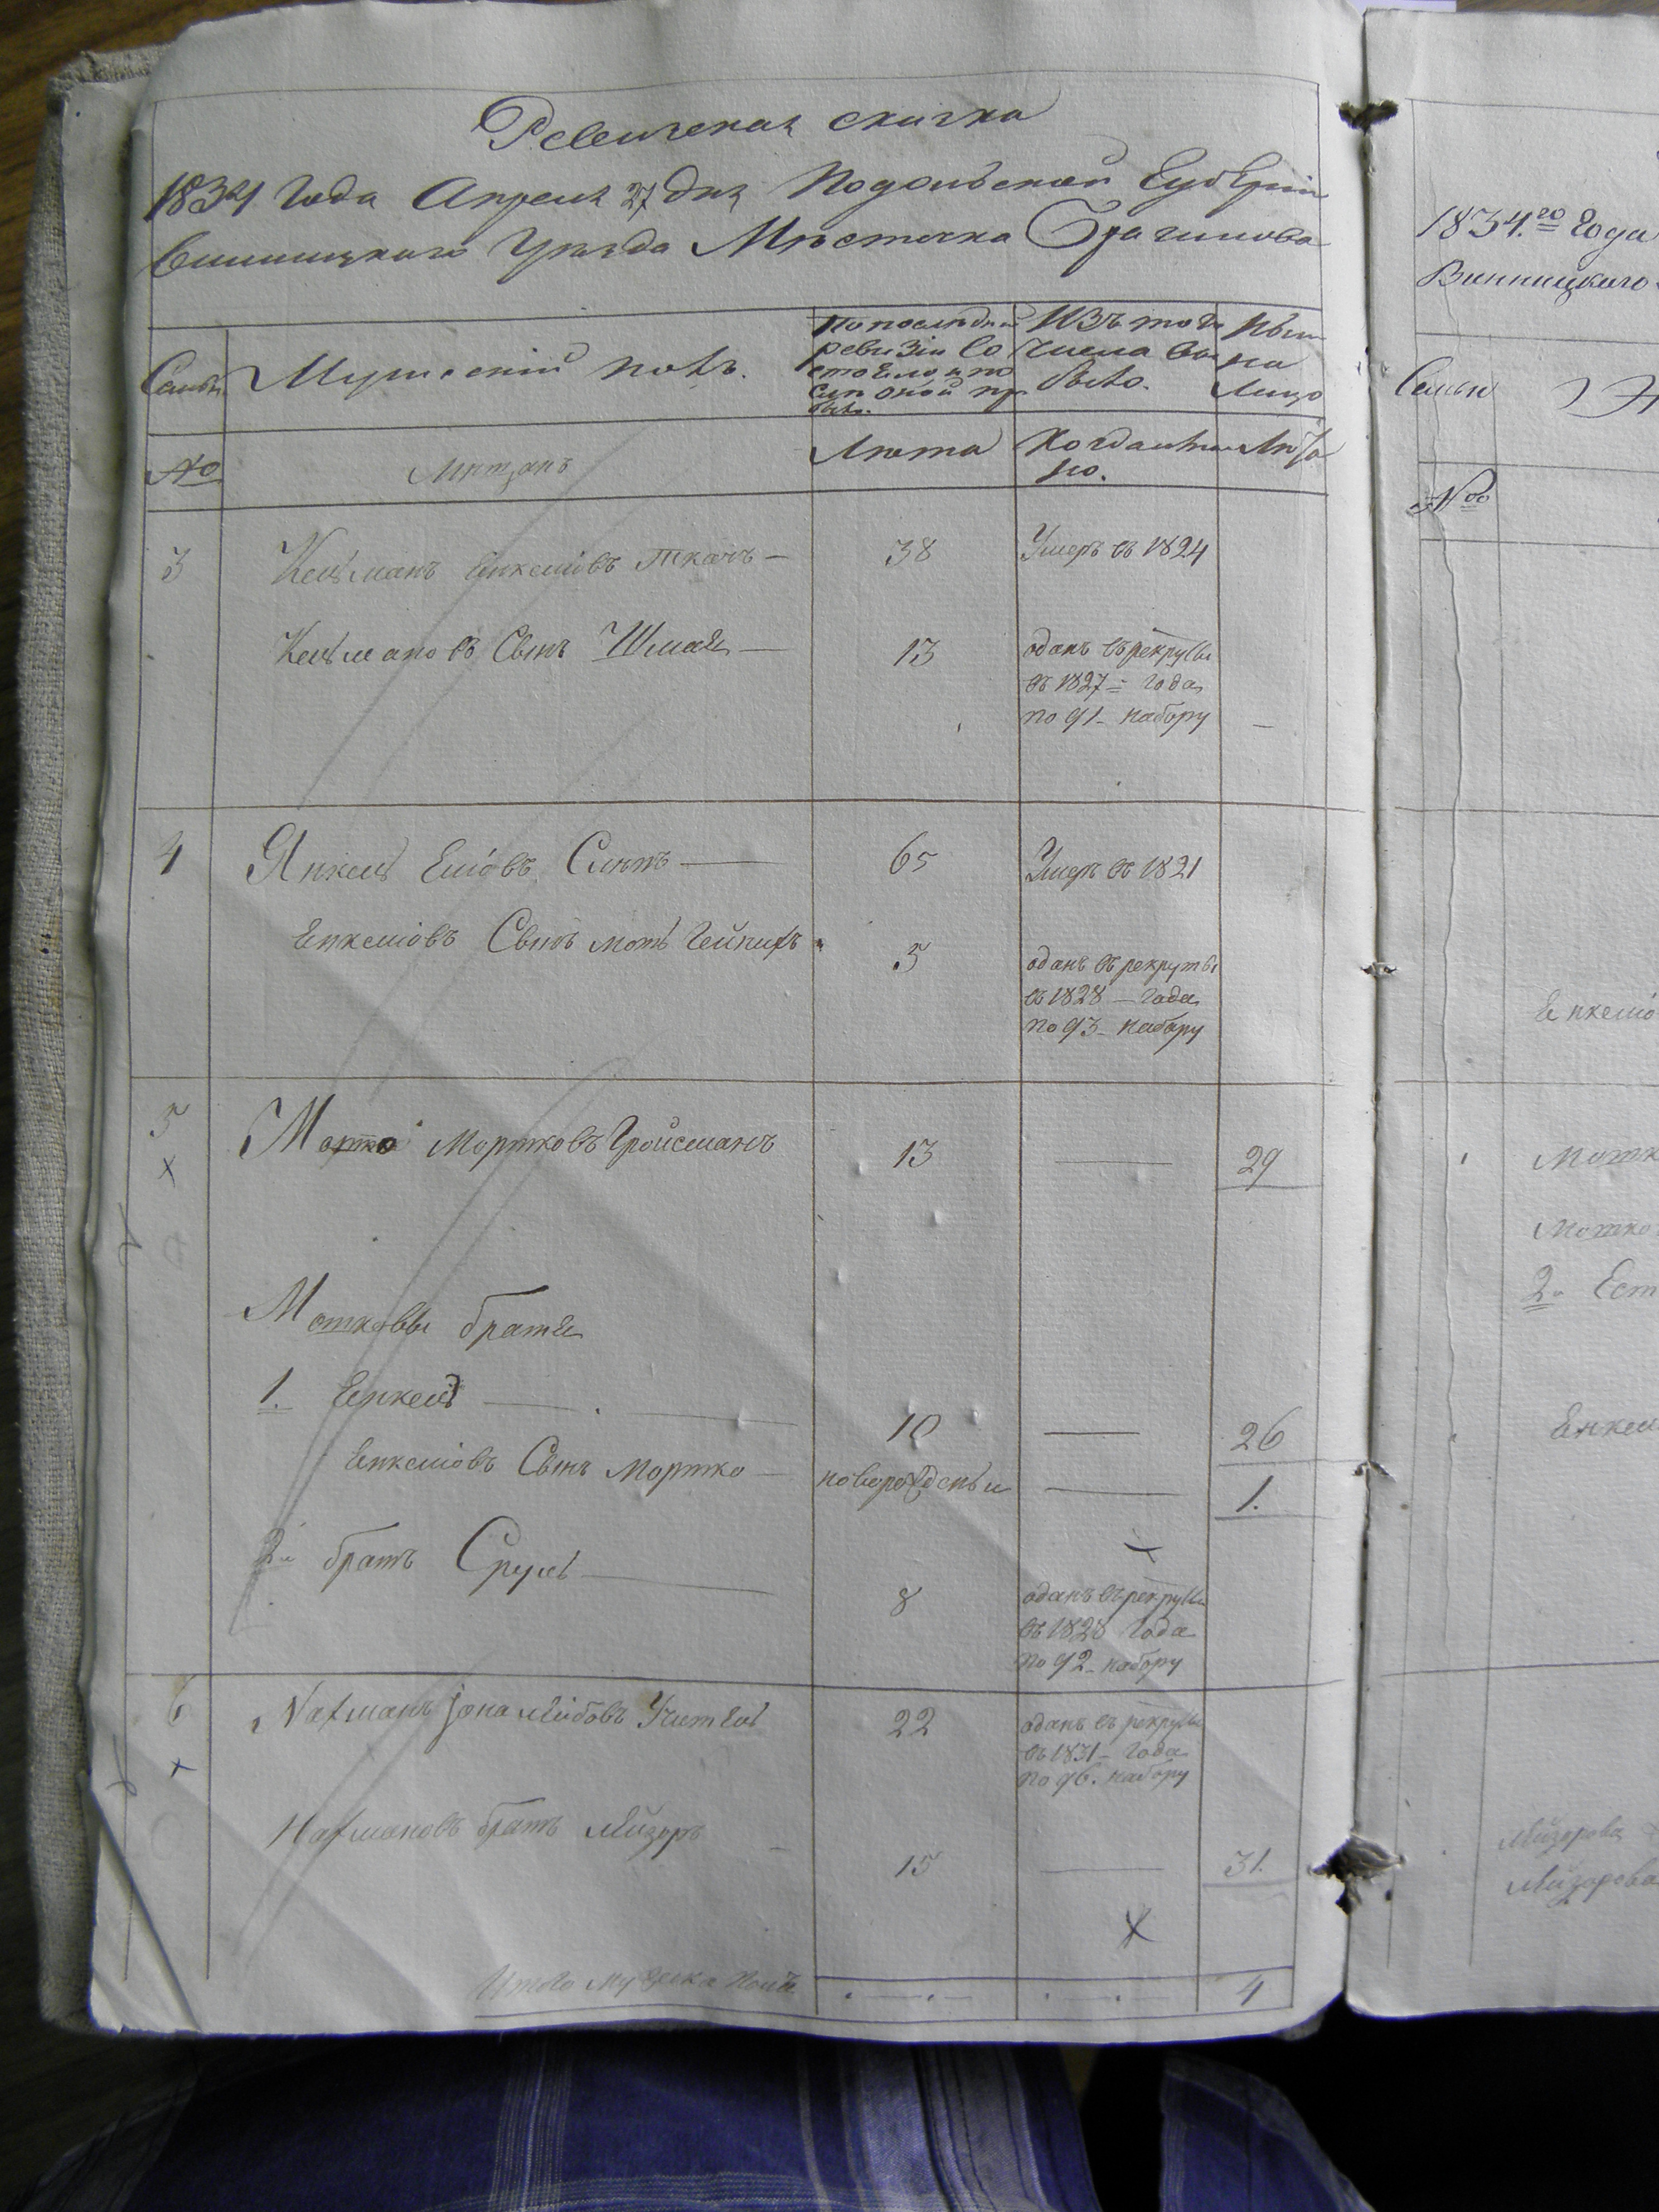 Ревижская скаска
1834 Года Апреля 27 дня Подольской Губерніи
Винницкаго Уѣзда Мѣстечка Брагилова
Семьи
Мужескій полъ.
По последней
ревизіи со
стояло и по
слѣ оной пр
было.
Изъ того
числа вы
было.
Нынѣ
на
лицо
№
Мѣщанъ
Лѣта
Когда имен
но.
Лѣта
3
Кельманъ Енкелiовъ Ткачъ —
38
Умеръ въ 1824
Кельмановъ Сынъ Шмая —
13
одан въ рекруты
въ 1827 = года
по 91 - набору
—
4
Янкель Еліовъ —
65
Умеръ въ 1821
Енкеліовъ Сынъ Моть
5
оданъ въ рекруты
въ 1828 — года
по 93 - набору
5
Мотко Мортковъ Гройсманъ
13
—
29
Мотковы братя
1. Енкель —
10
—
26
Енкеліовъ Сынъ Мортко —
новорожденъи
—
1.
2й братъ Сруль —
8
оданъ въ рекруты
въ 1828 года
по 92 - набору
6
Nахманъ Iона Лейбовъ
22
оданъ въ рекруты
въ 1831 - года
по 96. набору
Нахмановъ братъ Лейзоръ
15
—
31.
Итого мужеска пола
4
1834.го Года
Винницкаго
Семьи
№
Енкеліо
Мотк
Мотко
2. Ест
Енкел
Лейзорова
Лейзорова